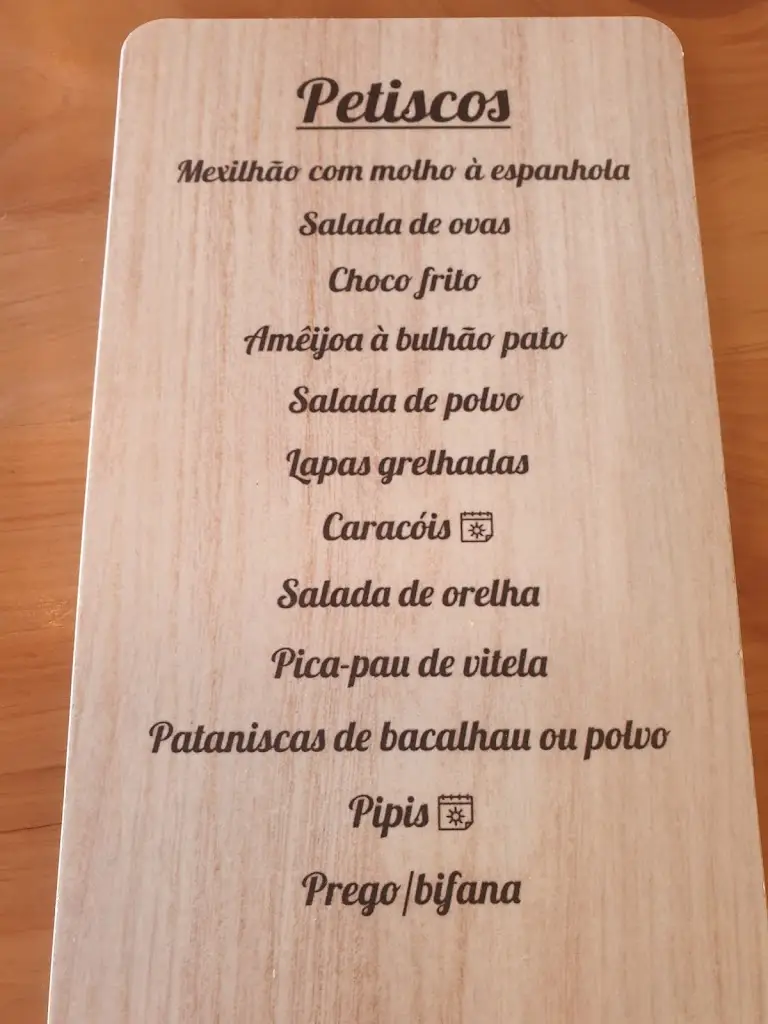 Petiscos
Mexilhão com molho à espanhola
Salada de ovas
Choco frito
Amêijoa à bulhão pato
Salada de polvo
Lapas grelhadas
Caracóis
Salada de orelha
Pica-pau de vitela
Pataniscas de bacalhau ou polvo
Pipis
Prego/bifana